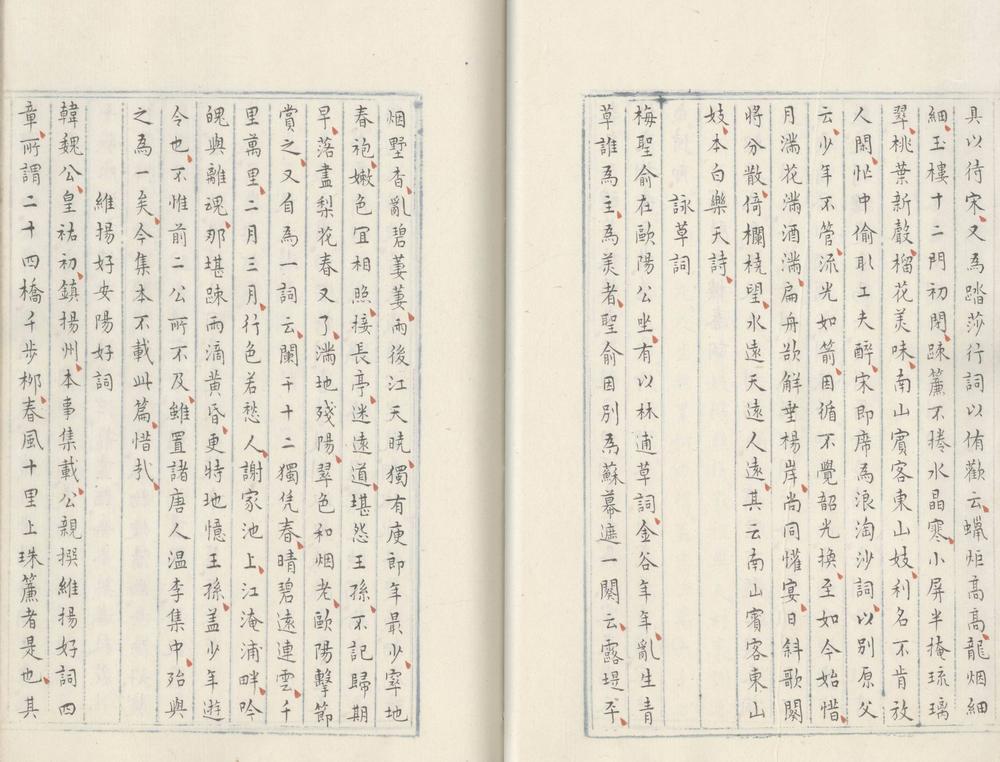 具以待宋又為踏莎行詞以侑歡云蠟炬高高龍烟細
細玉樓十二門初閉疎簾不捲水晶寒小屏半掩琉璃
翠桃葉新聲榴花美味南山賓客東山妓利名不肯放
人閑忙中偷取工夫醉宋即席為浪淘沙詞以別原父
云少年不管流光如箭因循不覺韶光換至如今始惜
月滿花滿酒滿扁舟欲解垂楊岸尚同懽宴日斜歌闋
將分散倚欄橈望水遠天遠人遠其云南山賓客東山
妓本白樂天詩
詠草詞
梅聖俞在歐陽公坐有以林逋草詞金谷年年亂生青
草誰為主為美者聖俞因別為蘇幕遮一闋云露堤平
烟墅杳亂碧萋萋雨後江天曉獨有庾郎年最少窣地
春袍嫩色宜相照接長亭迷遠道堪怨王孫不記歸期
早落盡梨花春又了滿地殘陽翠色和烟老歐陽擊節
賞之又自為一詞云闌干十二獨凭春晴碧遠連雲千
里萬里二月三月行色若愁人謝家池上江淹浦畔吟
魄與離魂那堪疎雨滴黃昏更特地憶王孫盖少年遊
令也不惟前二公所不及雖置諸唐人溫李集中殆與
之為一矣今集本不載此篇惜哉
維揚好安陽好詞
韓魏公皇祐初鎮揚州本事集載公親撰維揚好詞四
章所謂二十四橋千步柳春風十里上珠簾者是也其